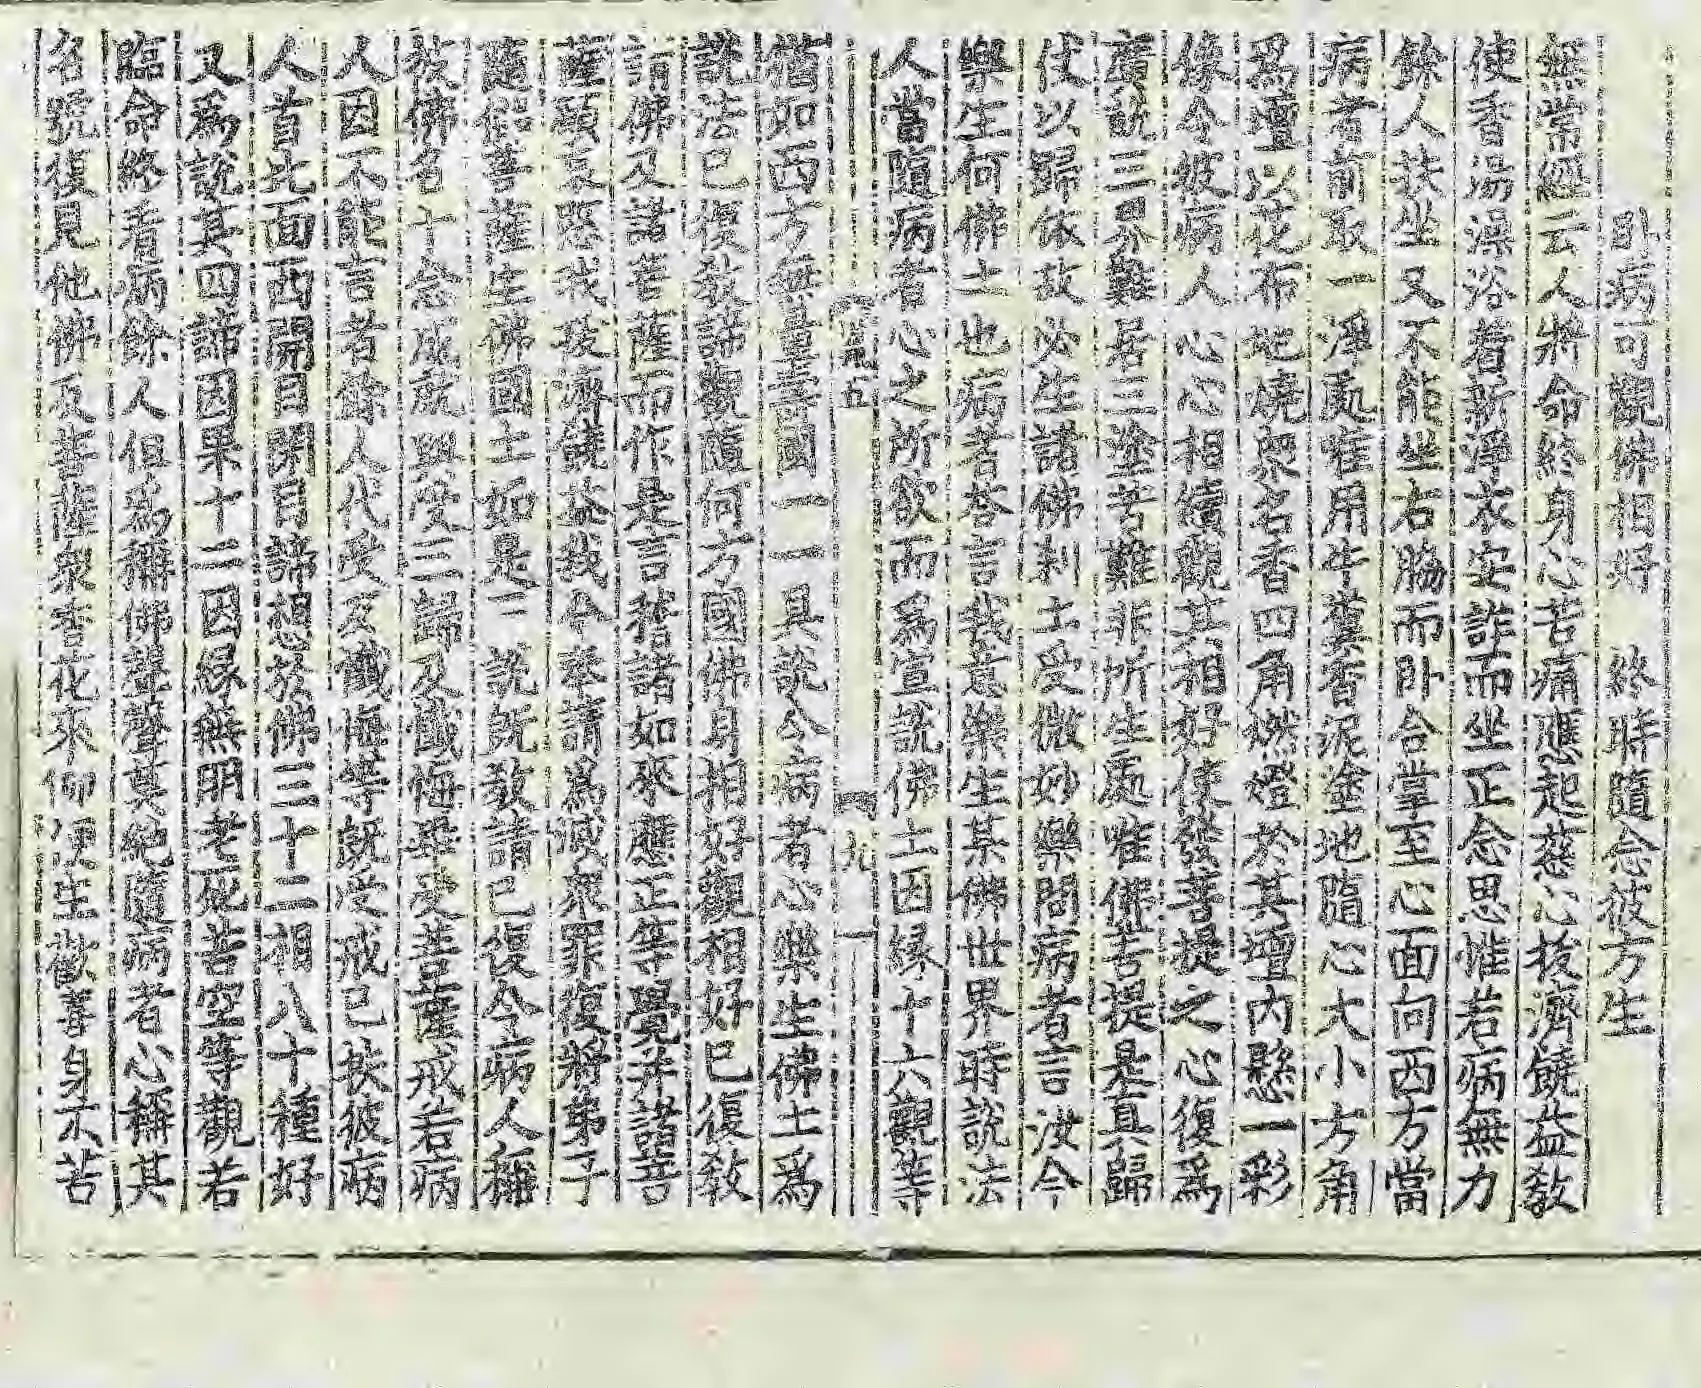 卧病可觀佛相好　終時隨念彼方生
無常經云人將命終身心苦痛應起慈心拔濟饒益教
使香湯澡浴着新淨衣安詳而坐正念思惟若病無力
餘人扶坐又不能坐右脇而卧合掌至心面向西方當
病者前取一淨處唯用牛糞香泥塗地隨心大小方角
爲壇以花布地燒衆名香四角燃燈於其壇内懸一彩
像令彼病人心心相續觀其相好使發菩提之心復爲
廣說三界難居三塗苦難非所生處唯佛菩提是真歸
仗以歸依故必生諸佛刹土受微妙樂問病者言汝今
樂生何佛土也病者荅言我意樂生某佛世界時說法
人當隨病者心之所欲而爲宣說佛土因緣十六觀等
猶如西方無量壽國一一具說令病者心樂生佛土爲
說法已復教諦觀隨何方國佛身相好觀相好已復教
請佛及諸菩薩而作是言稽諸如來應正等覺并諸菩
薩願哀愍我拔濟饒益我今奉請爲滅衆罪復將弟子
隨從菩薩生佛國土如是三說既教請已復令病人稱
彼佛名十念成就與受三歸及懺悔畢受菩薩戒若病
人因不能言者餘人代受及懺悔等既受戒已扶彼病
人首北面西開目閉目諦想於佛三十二相八十種好
又爲說其四諦因果十二因緣無明老死苦空等觀若
臨命終看病餘人但爲稱佛聲聲莫絶隨病者心稱其
名號復見他佛及菩薩衆香花來仰便生歡喜身不苦